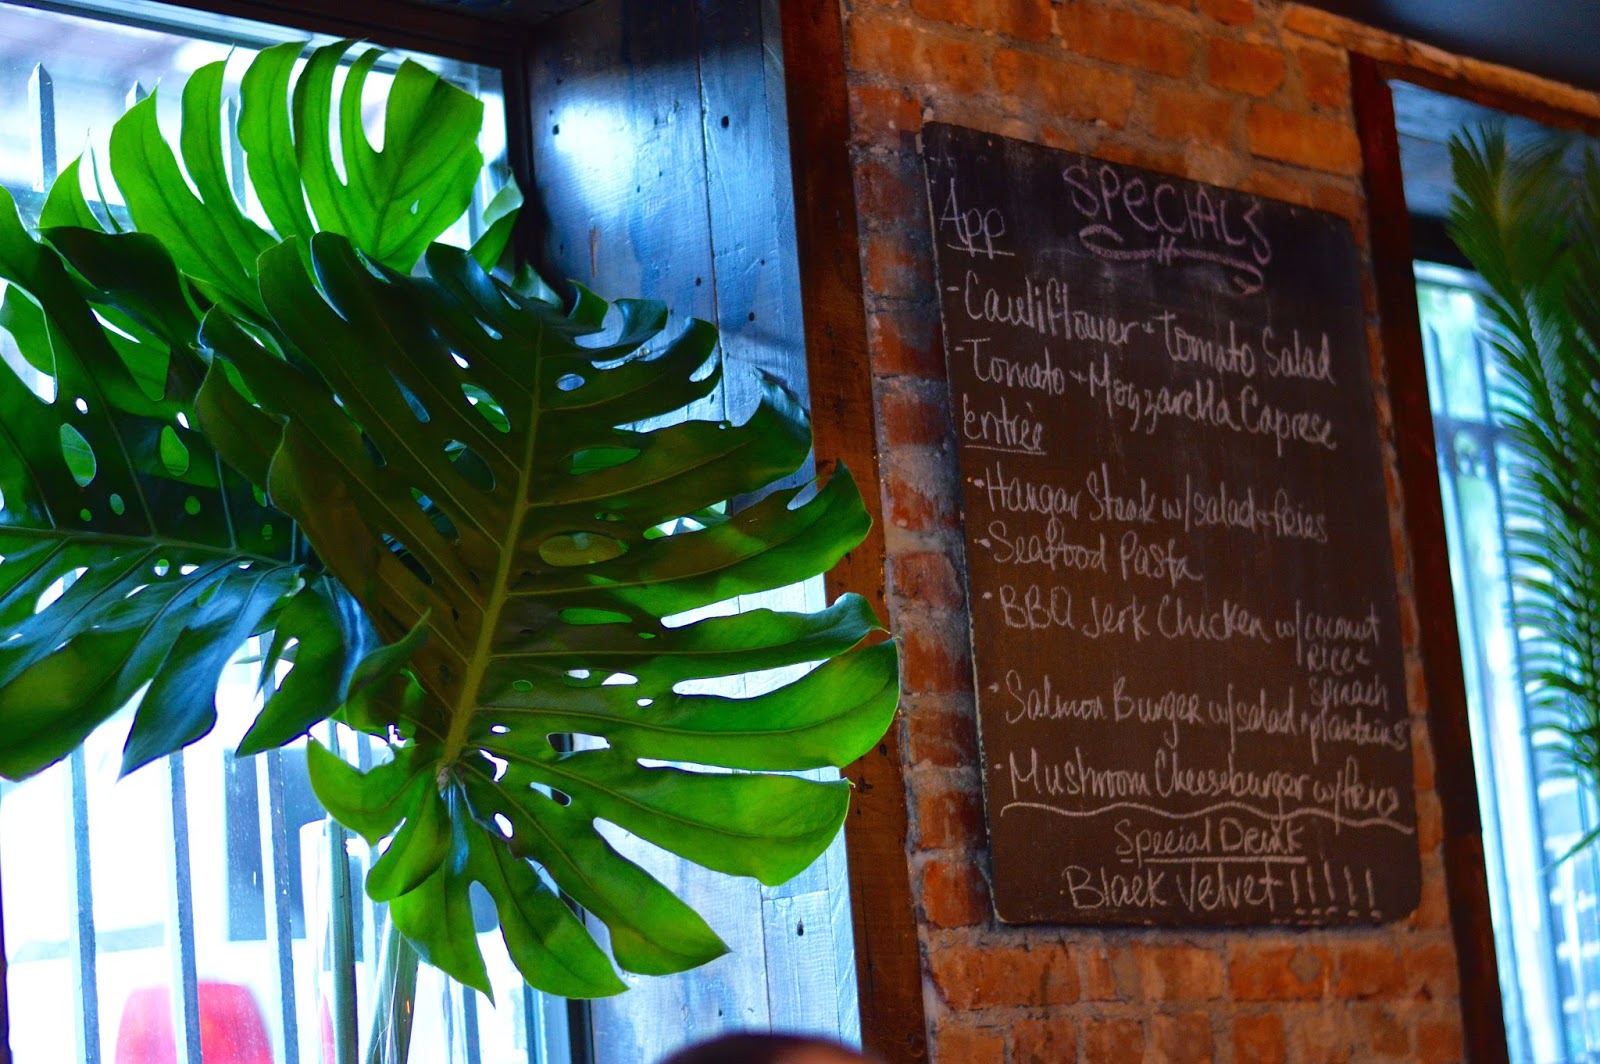 SPECIALS
App
- Cauliflower + Tomato Salad
- Tomato + Mozzarella Caprese
Entrée
• Hangar Steak w/salad + fries
• Seafood Pasta
• BBQ Jerk Chicken w/coconut
rice +
spinach
• Salmon Burger w/salad + plantains
• Mushroom Cheeseburger w/fries
Special Drink
• Black Velvet!!!!!